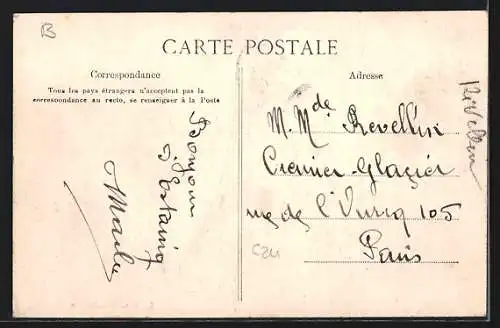 B
CARTE POSTALE
Correspondance
Tous les pays étrangers n'acceptent pas la
correspondance au recto, se renseigner à la Poste
Bonjour
d'Estaing
Adresse
M. Mde Revellin
Cremier-Glacier
rue de l'Ourcq 105
Paris